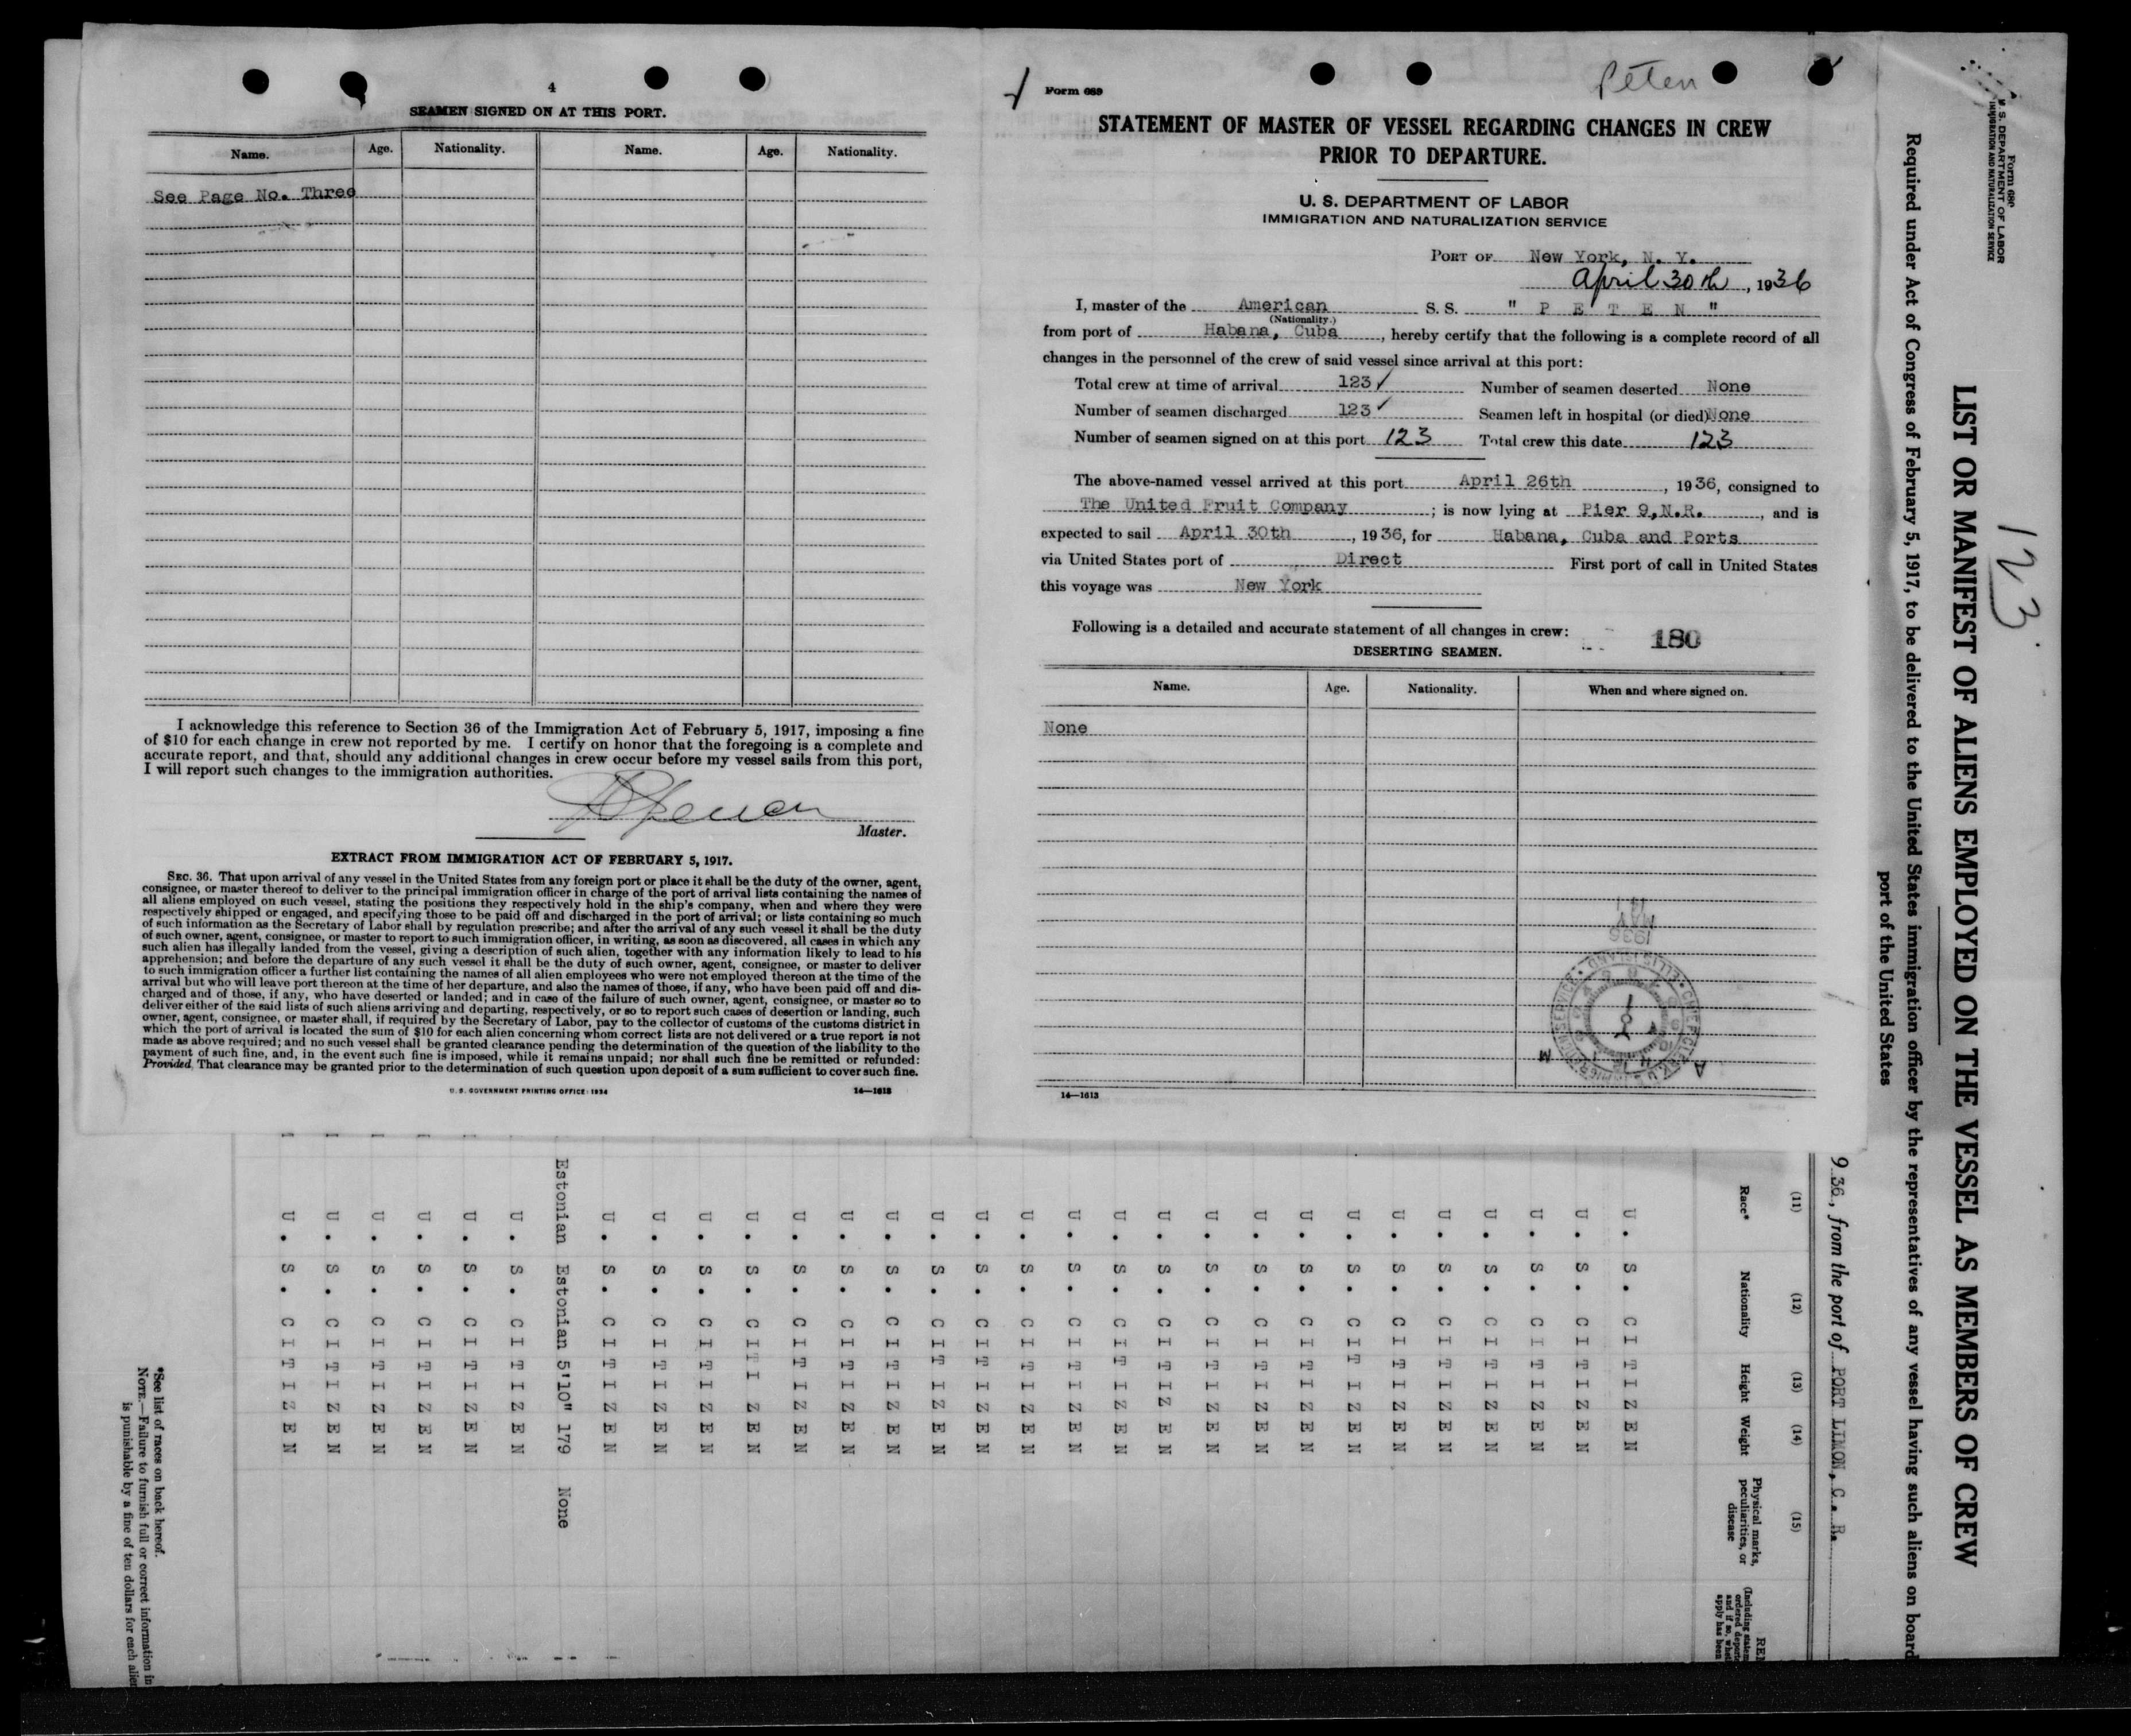 4
SEAMEN SIGNED ON AT THIS PORT.
Name. Age. Nationality. Name. Age. Nationality.
See Page No. Three
I acknowledge this reference to Section 36 of the Immigration Act of February 5, 1917, imposing a fine
of $10 for each change in crew not reported by me. I certify on honor that the foregoing is a complete and
accurate report, and that, should any additional changes in crew occur before my vessel sails from this port,
I will report such changes to the immigration authorities.
Master.
EXTRACT FROM IMMIGRATION ACT OF FEBRUARY 5, 1917.
SEC. 36. That upon arrival of any vessel in the United States from any foreign port or place it shall be the duty of the owner, agent,
consignee, or master thereof to deliver to the principal immigration officer in charge of the port of arrival lists containing the names of
all aliens employed on such vessel, stating the positions they respectively hold in the ship's company, when and where they were
respectively shipped or engaged, and specifying those to be paid off and discharged in the port of arrival; or lists containing so much
of such information as the Secretary of Labor shall by regulation prescribe; and after the arrival of any such vessel it shall be the duty
of such owner, agent, consignee, or master to report to such immigration officer, in writing, as soon as discovered, all cases in which any
such alien has illegally landed from the vessel, giving a description of such alien, together with any information likely to lead to his
apprehension; and before the departure of any such vessel it shall be the duty of such owner, agent, consignee, or master to deliver
to such immigration officer a further list containing the names of all alien employees who were not employed thereon at the time of the
arrival but who will leave port thereon at the time of her departure, and also the names of those, if any, who have been paid off and dis-
charged and of those, if any, who have deserted or landed; and in case of the failure of such owner, agent, consignee, or master so to
deliver either of the said lists of such aliens arriving and departing, respectively, or so to report such cases of desertion or landing, such
owner, agent, consignee, or master shall, if required by the Secretary of Labor, pay to the collector of customs of the customs district in
which the port of arrival is located the sum of $10 for each alien concerning whom correct lists are not delivered or a true report is not
made as above required; and no such vessel shall be granted clearance pending the determination of the question of the liability to the
payment of such fine, and, in the event such fine is imposed, while it remains unpaid; nor shall such fine be remitted or refunded:
Provided, That clearance may be granted prior to the determination of such question upon deposit of a sum sufficient to cover such fine.
U. S. GOVERNMENT PRINTING OFFICE: 1934 14—1613
Peten
Form 689
STATEMENT OF MASTER OF VESSEL REGARDING CHANGES IN CREW
PRIOR TO DEPARTURE.
U. S. DEPARTMENT OF LABOR
IMMIGRATION AND NATURALIZATION SERVICE
PORT OF New York, N. Y.
April 30th, 1936
I, master of the American S. S. " P E T E N "
(Nationality.)
from port of Habana, Cuba, hereby certify that the following is a complete record of all
changes in the personnel of the crew of said vessel since arrival at this port:
Total crew at time of arrival 123 ✓ Number of seamen deserted None
Number of seamen discharged 123 ✓ Seamen left in hospital (or died) None
Number of seamen signed on at this port 123 Total crew this date 123
The above-named vessel arrived at this port April 26th, 1936, consigned to
The United Fruit Company; is now lying at Pier 9, N.R., and is
expected to sail April 30th, 1936, for Habana, Cuba and Ports
via United States port of Direct First port of call in United States
this voyage was New York
Following is a detailed and accurate statement of all changes in crew:
180
DESERTING SEAMEN.
Name. Age. Nationality. When and where signed on.
None
MAY
1936
14—1613
Form 680
U. S. DEPARTMENT OF LABOR
IMMIGRATION AND NATURALIZATION SERVICE
123
LIST OR MANIFEST OF ALIENS EMPLOYED ON THE VESSEL AS MEMBERS OF CREW
Required under Act of Congress of February 5, 1917, to be delivered to the United States immigration officer by the representatives of any vessel having such aliens on board
port of the United States
9 36, from the port of PORT LIMON, C. R.
(11) (12) (13) (14) (15)
Race* Nationality Height Weight Physical marks, peculiarities, or disease
U. S. CITIZEN
U. S. CITIZEN
U. S. CITIZEN
U. S. CITIZEN
U. S. CITIZEN
U. S. CITIZEN
U. S. CITIZEN
U. S. CITIZEN
U. S. CITIZEN
U. S. CITIZEN
U. S. CITIZEN
U. S. CITIZEN
U. S. CITIZEN
U. S. CITIZEN
U. S. CITIZEN
U. S. CITIZEN
U. S. CITIZEN
U. S. CITIZEN
U. S. CITIZEN
U. S. CITIZEN
U. S. CITIZEN
U. S. CITIZEN
U. S. CITIZEN
Estonian Estonian 5'10" 179 None
U. S. CITIZEN
U. S. CITIZEN
U. S. CITIZEN
U. S. CITIZEN
U. S. CITIZEN
U. S. CITIZEN
*See list of races on back hereof.
NOTE.—Failure to furnish full or correct information in
is punishable by a fine of ten dollars for each alien